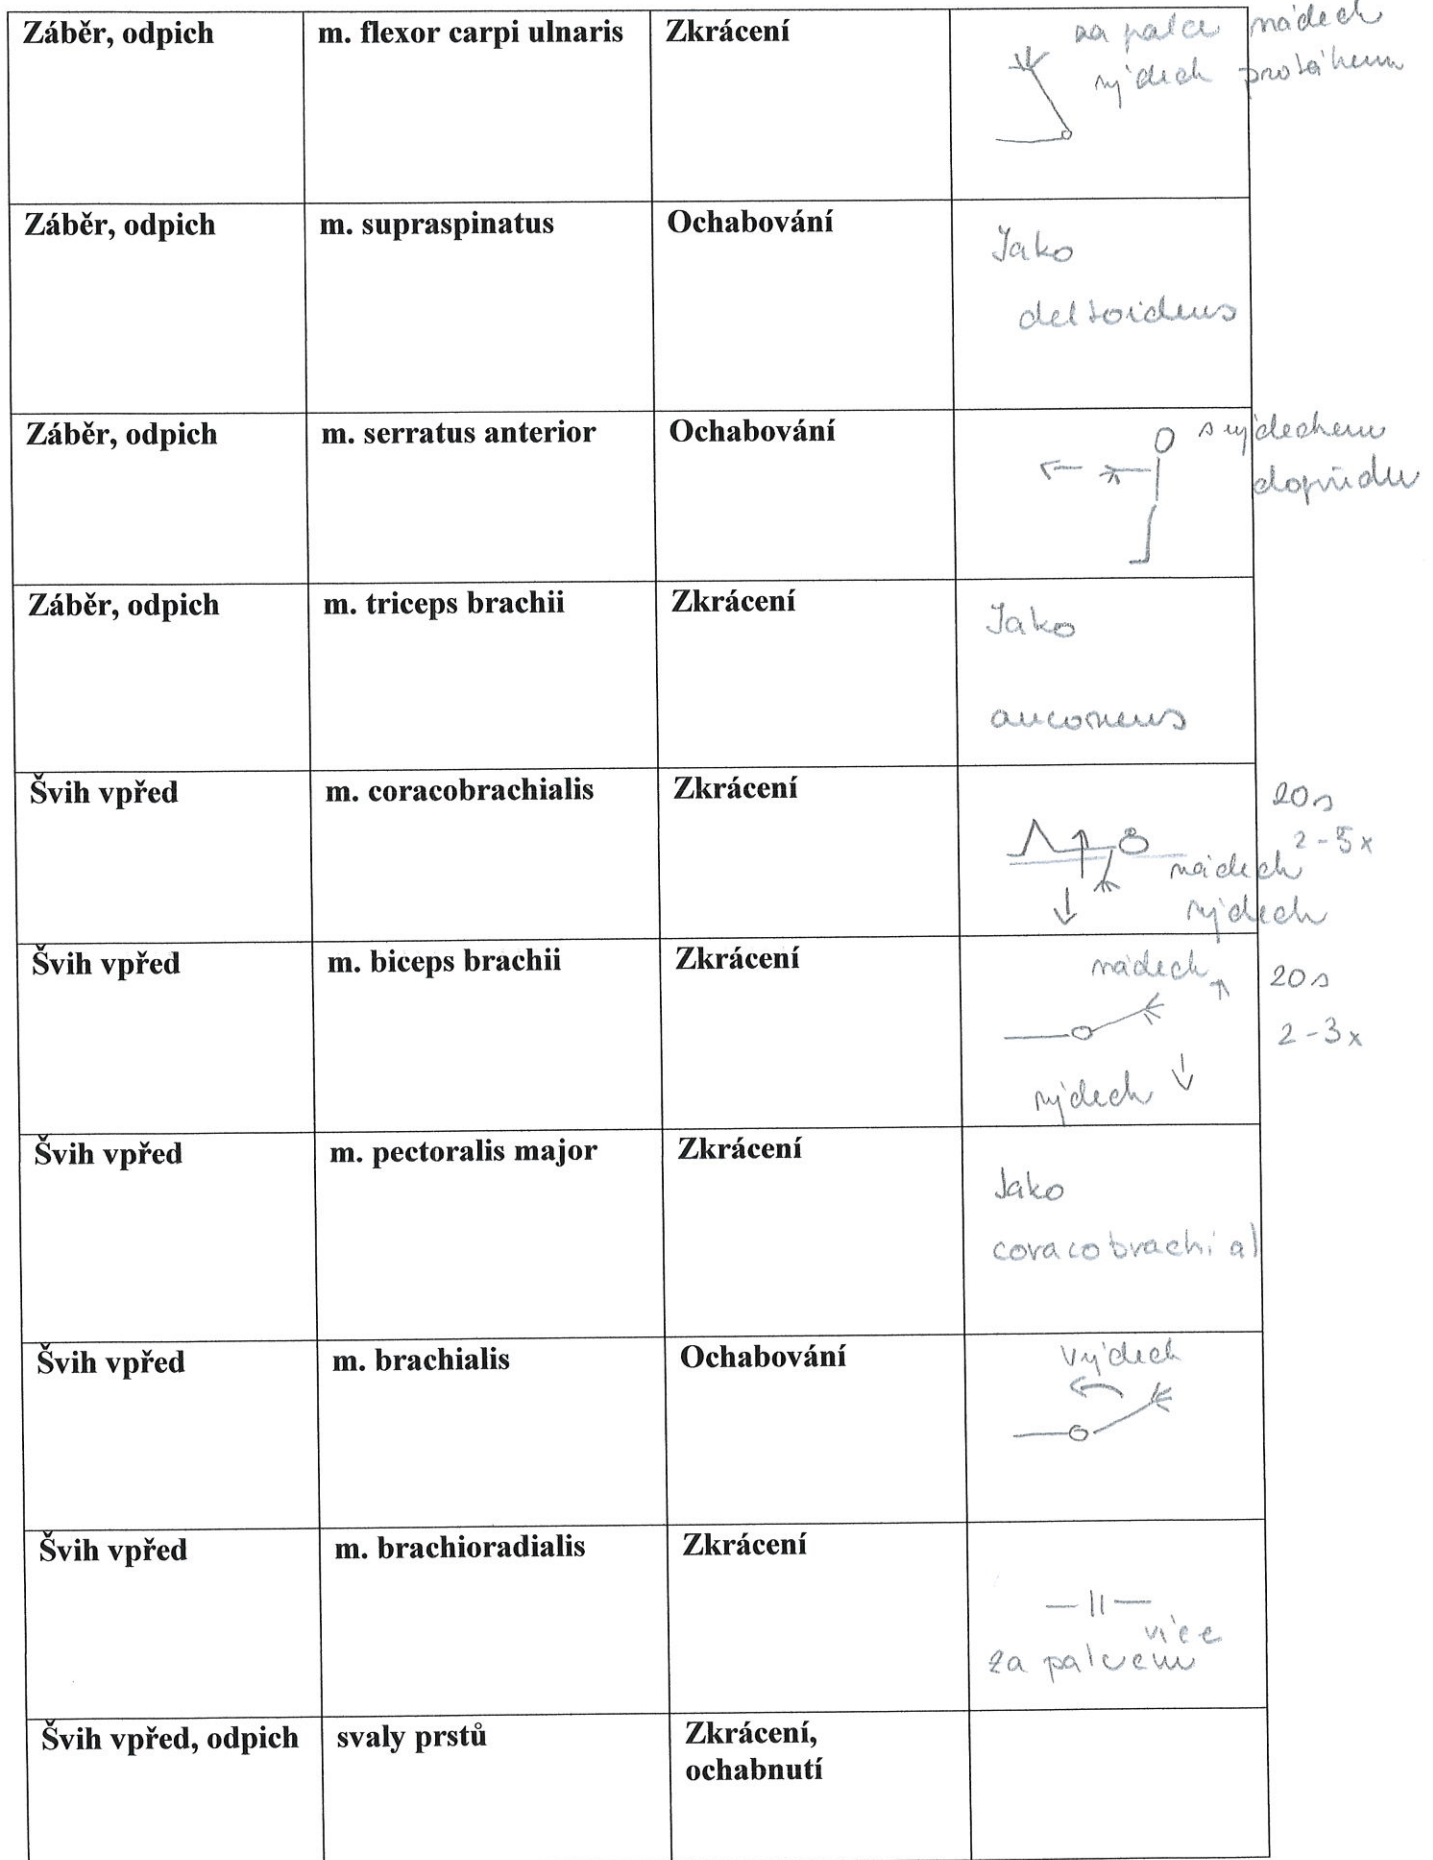 Záběr, odpich m. flexor carpi ulnaris Zkrácení
na palce nádech
výdech protáhem
Záběr, odpich m. supraspinatus Ochabování
Jako
deltoideus
Záběr, odpich m. serratus anterior Ochabování
s výdechem
dopředu
Záběr, odpich m. triceps brachii Zkrácení
Jako
anconeus
Švih vpřed m. coracobrachialis Zkrácení
20s
2-5x
nádech
výdech
Švih vpřed m. biceps brachii Zkrácení
nádech
20s
2-3x
výdech
Švih vpřed m. pectoralis major Zkrácení
Jako
coracobrachial
Švih vpřed m. brachialis Ochabování
Výdech
Švih vpřed m. brachioradialis Zkrácení
—||—
více
za palcem
Švih vpřed, odpich svaly prstů Zkrácení,
ochabnutí